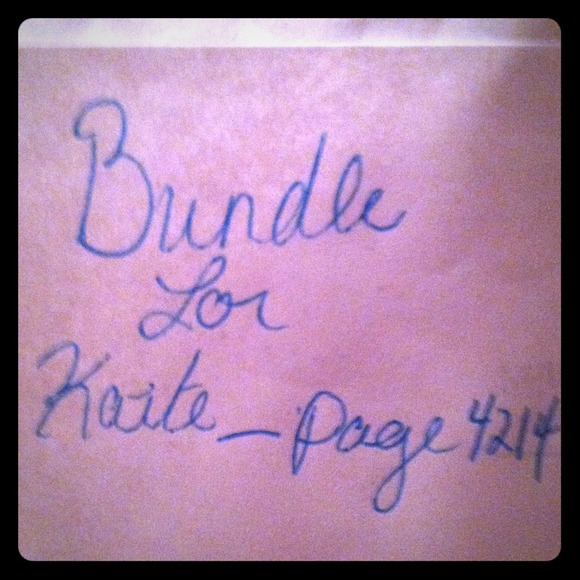 Bundle
for
Kaite_page4214